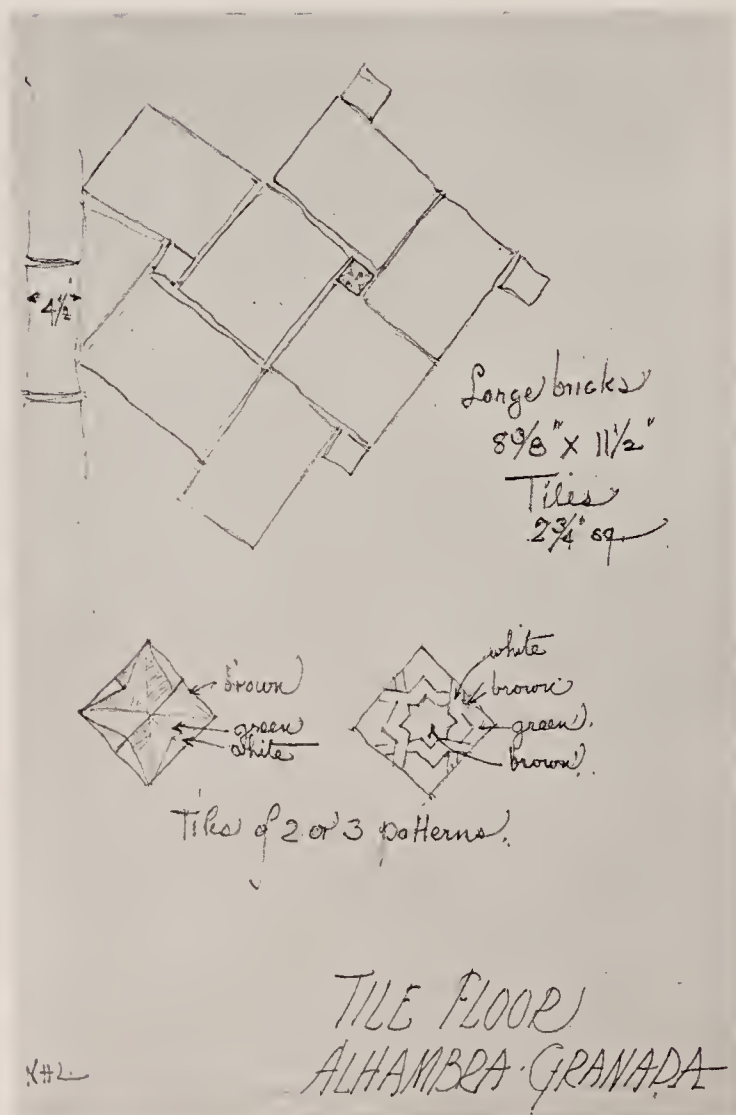 4½"
Large bricks
8⅜" X 11½"
Tiles
2¾" sq
brown
green
white
white
brown
green
brown
Tiles of 2 or 3 patterns.
TILE FLOOR
ALHAMBRA·GRANADA